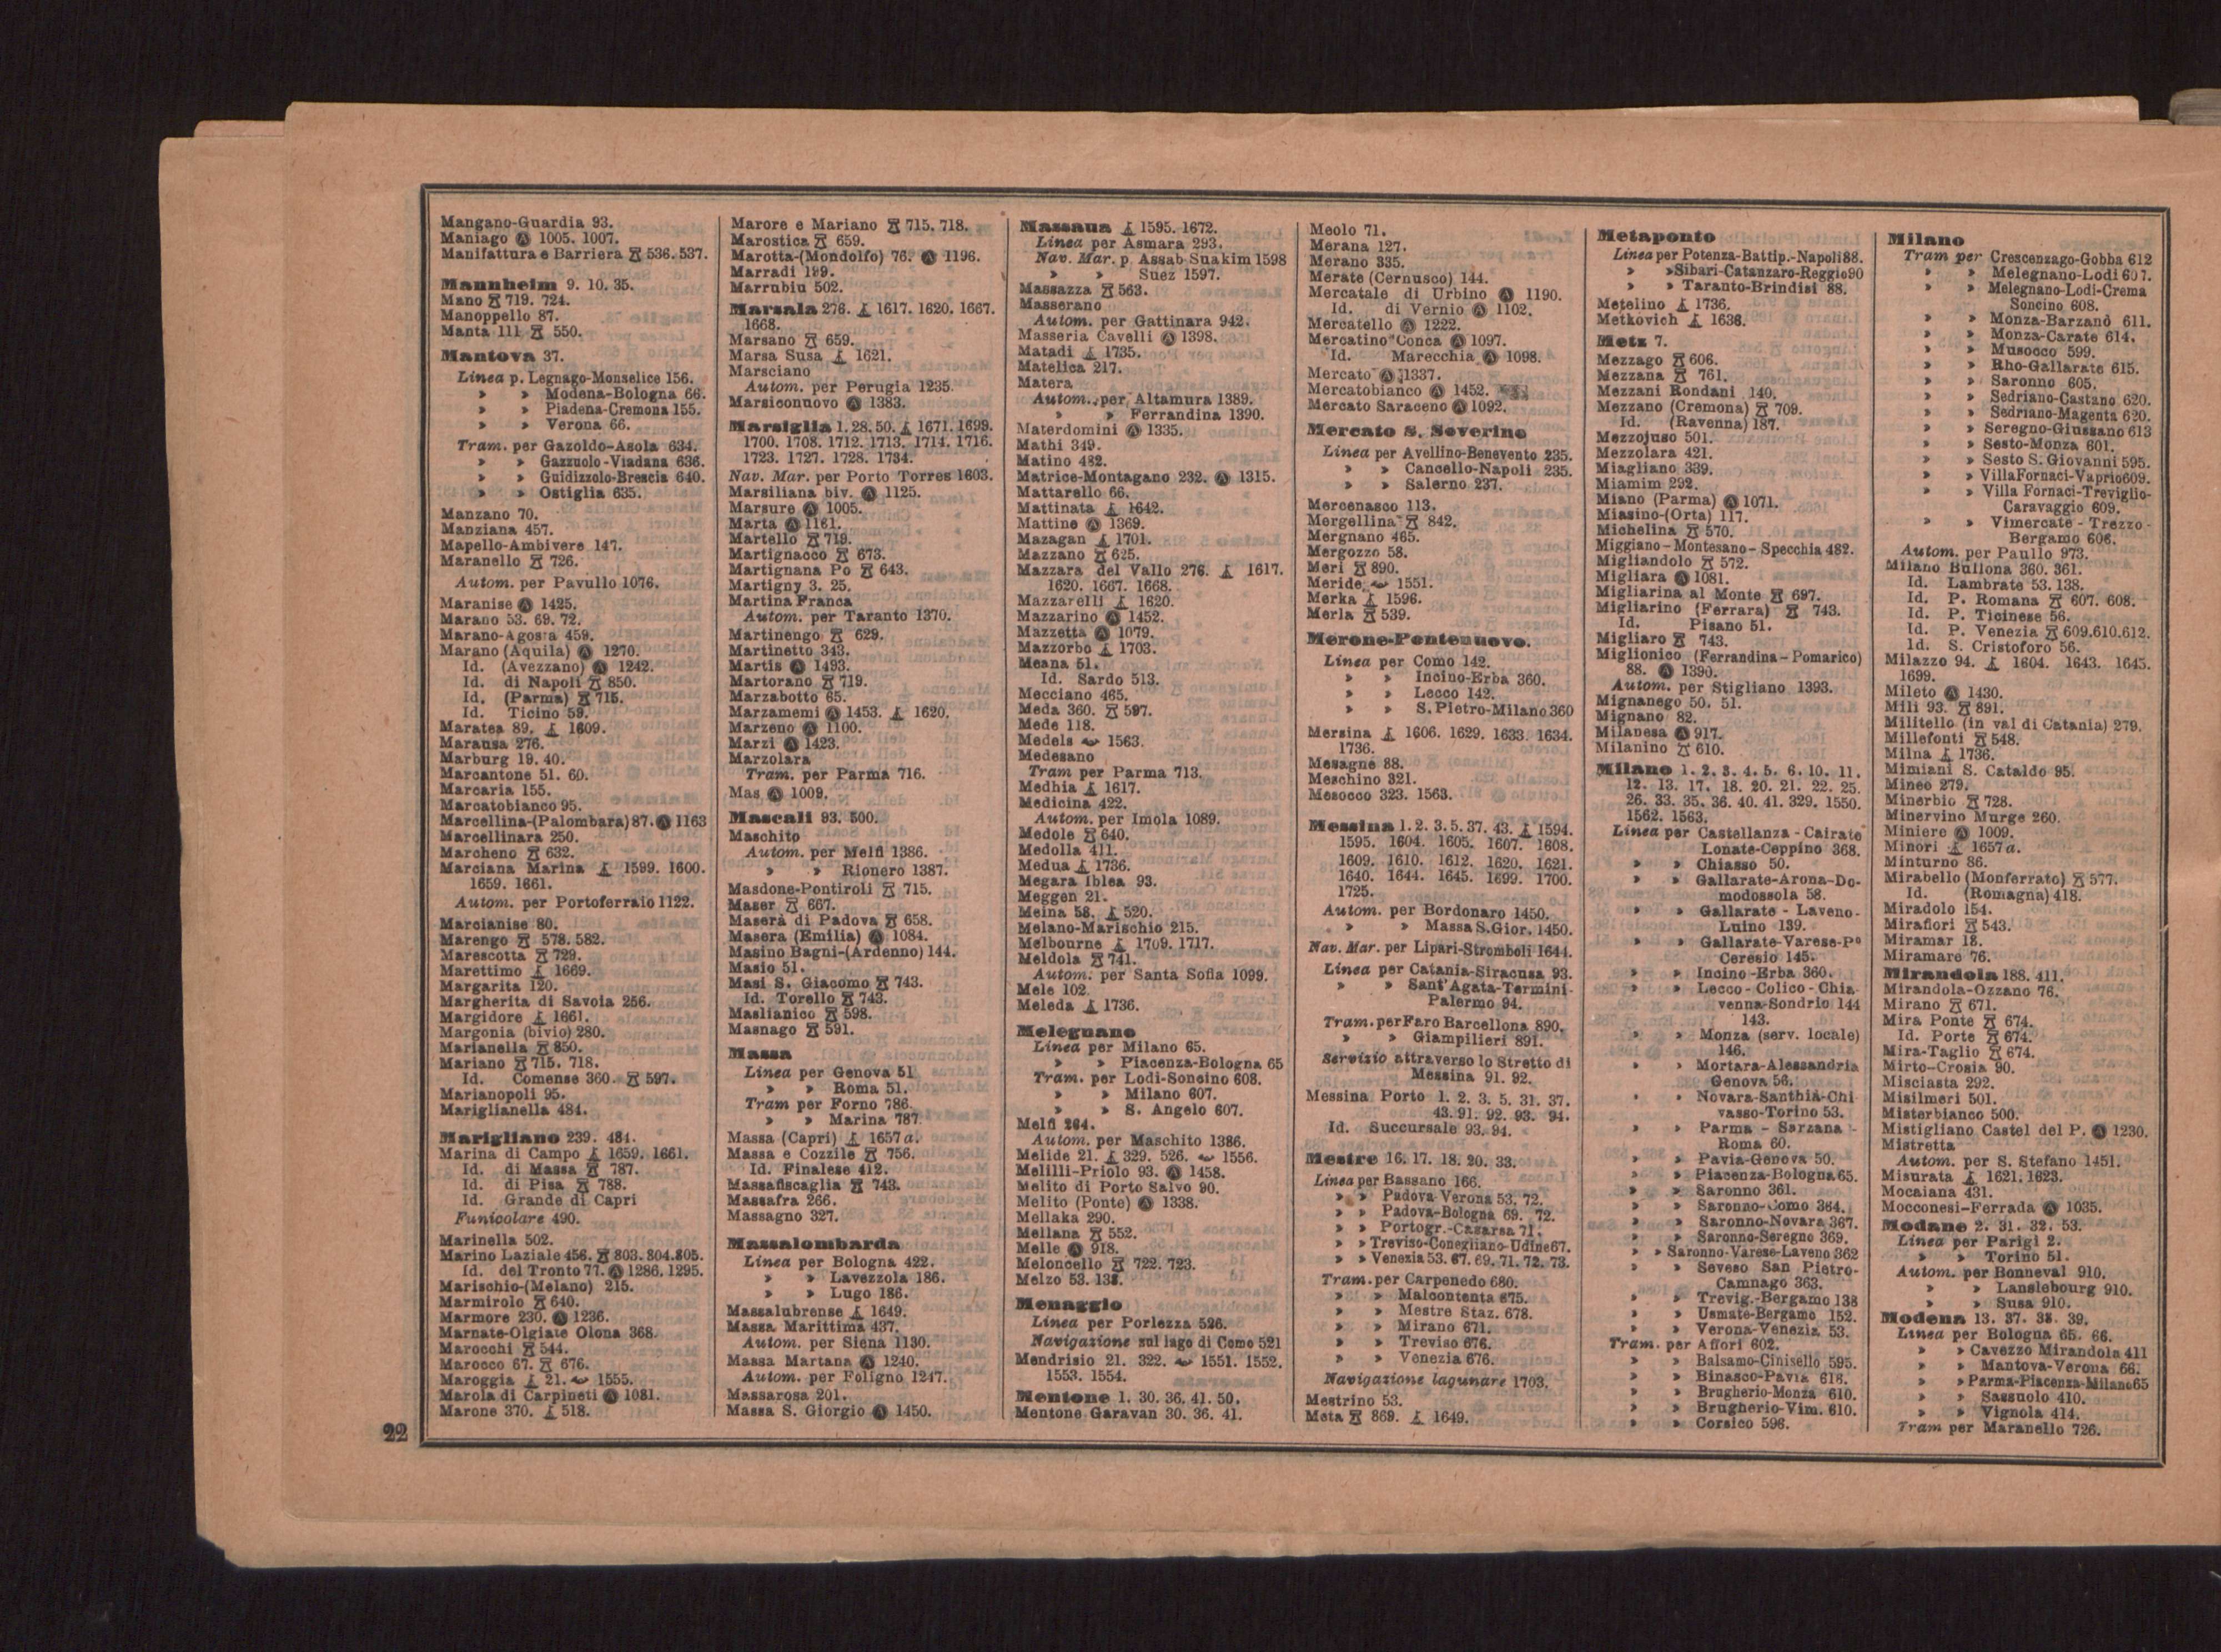 Mangano-Guardia 93.
Maniago Ⓐ 1005. 1007.
Manifattura e Barriera 536. 537.
Mannheim 9. 10. 35.
Mano 719. 724.
Manoppello 87.
Manta 111 550.
Mantova 37.
Linea p. Legnago-Monselice 156.
» » Modena-Bologna 66.
» » Piadena-Cremona 155.
» » Verona 66.
Tram. per Gazoldo-Asola 634.
» » Gazzuolo-Viadana 636.
» » Guidizzolo-Brescia 640.
» » Ostiglia 635.
Manzano 70.
Manziana 457.
Mapello-Ambivere 147.
Maranello 726.
Autom. per Pavullo 1076.
Maranise Ⓐ 1425.
Marano 53. 69. 72.
Marano-Agosta 459.
Marano (Aquila) Ⓐ 1270.
Id. (Avezzano) Ⓐ 1242.
Id. di Napoli 850.
Id. (Parma) 715.
Id. Ticino 59.
Maratea 89. 1609.
Marausa 276.
Marburg 19. 40.
Marcantone 51. 60.
Marcaria 155.
Marcatobianco 95.
Marcellina-(Palombara) 87. Ⓐ 1163
Marcellinara 250.
Marcheno 632.
Marciana Marina 1599. 1600.
1659. 1661.
Autom. per Portoferraio 1122.
Marcianise 80.
Marengo 578. 582.
Marescotta 729.
Marettimo 1669.
Margarita 120.
Margherita di Savoia 256.
Margidore 1661.
Margonia (bivio) 280.
Marianella 850.
Mariano 715. 718.
Id. Comense 360. 597.
Marianopoli 95.
Mariglianella 484.
Marigliano 239. 484.
Marina di Campo 1659. 1661.
Id. di Massa 787.
Id. di Pisa 788.
Id. Grande di Capri
Funicolare 490.
Marinella 502.
Marino Laziale 456. 803. 804. 805.
Id. del Tronto 77. Ⓐ 1286. 1295.
Marischio-(Melano) 215.
Marmirolo 640.
Marmore 230. Ⓐ 1236.
Marnate-Olgiate Olona 368.
Marocchi 544.
Marocco 67. 676.
Maroggia 21. 1555.
Marola di Carpineti Ⓐ 1081.
Marone 370. 518.
Marore e Mariano 715. 718.
Marostica 659.
Marotta-(Mondolfo) 76. Ⓐ 1196.
Marradi 189.
Marrubiu 502.
Marsala 276. 1617. 1620. 1667.
1668.
Marsano 659.
Marsa Susa 1621.
Marsciano
Autom. per Perugia 1235.
Marsiconuovo Ⓐ 1383.
Marsiglia 1. 28. 50. 1671. 1699.
1700. 1708. 1712. 1713. 1714. 1716.
1723. 1727. 1728. 1734.
Nav. Mar. per Porto Torres 1603.
Marsiliana biv. Ⓐ 1125.
Marsure Ⓐ 1005.
Marta Ⓐ 1161.
Martello 719.
Martignacco 673.
Martignana Po 643.
Martigny 3. 25.
Martina Franca
Autom. per Taranto 1370.
Martinengo 629.
Martinetto 343.
Martis Ⓐ 1493.
Martorano 719.
Marzabotto 65.
Marzamemi Ⓐ 1453. 1620.
Marzeno Ⓐ 1100.
Marzi Ⓐ 1423.
Marzolara
Tram. per Parma 716.
Mas Ⓐ 1009.
Mascali 93. 500.
Maschito
Autom. per Melfi 1386.
» » Rionero 1387.
Masdone-Pontiroli 715.
Maser 667.
Maserà di Padova 658.
Masera (Emilia) Ⓐ 1084.
Masino Bagni-(Ardenno) 144.
Masio 51.
Masi S. Giacomo 743.
Id. Torello 743.
Maslianico 598.
Masnago 591.
Massa
Linea per Genova 51
» » Roma 51.
Tram per Forno 786.
» » Marina 787.
Massa (Capri) 1657a.
Massa e Cozzile 756.
Id. Finalese 412.
Massafiscaglia 743.
Massafra 266.
Massagno 327.
Massalombarda
Linea per Bologna 422.
» » Lavezzola 186.
» » Lugo 186.
Massalubrense 1649.
Massa Marittima 437.
Autom. per Siena 1130.
Massa Martana Ⓐ 1240.
Autom. per Foligno 1247.
Massarosa 201.
Massa S. Giorgio Ⓐ 1450.
Massaua 1595. 1672.
Linea per Asmara 293.
Nav. Mar. p. Assab Suakim 1598
» » Suez 1597.
Massazza 563.
Masserano
Autom. per Gattinara 942.
Masseria Cavelli Ⓐ 1398.
Matadi 1735.
Matelica 217.
Matera
Autom. per Altamura 1389.
» » Ferrandina 1390.
Materdomini Ⓐ 1335.
Mathi 349.
Matino 482.
Matrice-Montagano 232. Ⓐ 1315.
Mattarello 66.
Mattinata 1642.
Mattine Ⓐ 1369.
Mazagan 1701.
Mazzano 625.
Mazzara del Vallo 276. 1617.
1620. 1667. 1668.
Mazzarelli 1620.
Mazzarino Ⓐ 1452.
Mazzetta Ⓐ 1079.
Mazzorbo 1703.
Meana 51.
Id. Sardo 513.
Mecciano 465.
Meda 360. 597.
Mede 118.
Medels 1563.
Medesano
Tram per Parma 713.
Medhia 1617.
Medicina 422.
Autom. per Imola 1089.
Medole 640.
Medolla 411.
Medua 1736.
Megara Iblea 93.
Meggen 21.
Meina 58. 520.
Melano-Marischio 215.
Melbourne 1709. 1717.
Meldola 741.
Autom. per Santa Sofia 1099.
Mele 102.
Meleda 1736.
Melegnano
Linea per Milano 65.
» » Piacenza-Bologna 65
Tram. per Lodi-Soncino 608.
» » Milano 607.
» » S. Angelo 607.
Melfi 264.
Autom. per Maschito 1386.
Melide 21. 329. 526. 1556.
Melilli-Priolo 93. Ⓐ 1458.
Melito di Porto Salvo 90.
Melito (Ponte) Ⓐ 1338.
Mellaka 290.
Mellana 552.
Melle Ⓐ 918.
Meloncello 722. 723.
Melzo 53. 138.
Menaggio
Linea per Porlezza 526.
Navigazione sul lago di Como 521
Mendrisio 21. 322. 1551. 1552.
1553. 1554.
Mentone 1. 30. 36. 41. 50.
Mentone Garavan 30. 36. 41.
Meolo 71.
Merana 127.
Merano 335.
Merate (Cernusco) 144.
Mercatale di Urbino Ⓐ 1190.
Id. di Vernio Ⓐ 1102.
Mercatello Ⓐ 1222.
Mercatino Conca Ⓐ 1097.
Id. Marecchia Ⓐ 1098.
Mercato Ⓐ 1337.
Mercatobianco Ⓐ 1452.
Mercato Saraceno Ⓐ 1092.
Mercato S. Severino
Linea per Avellino-Benevento 235.
» » Cancello-Napoli 235.
» » Salerno 237.
Mercenasco 113.
Mergellina 842.
Mergnano 465.
Mergozzo 58.
Meri 890.
Meride 1551.
Merka 1596.
Merla 539.
Merone-Pontenuovo.
Linea per Como 142.
» » Incino-Erba 360.
» » Lecco 142.
» » S. Pietro-Milano 360
Mersina 1606. 1629. 1633. 1634.
1736.
Mesagne 88.
Meschino 321.
Mesocco 323. 1563.
Messina 1. 2. 3. 5. 37. 43. 1594.
1595. 1604. 1605. 1607. 1608.
1609. 1610. 1612. 1620. 1621.
1640. 1644. 1645. 1699. 1700.
1725.
Autom. per Bordonaro 1450.
» » Massa S. Gior. 1450.
Nav. Mar. per Lipari-Stromboli 1644.
Linea per Catania-Siracusa 93.
» » Sant'Agata-Termini-
Palermo 94.
Tram. per Faro Barcellona 890.
» » Giampilieri 891.
Servizio attraverso lo Stretto di
Messina 91. 92.
Messina Porto 1. 2. 3. 5. 31. 37.
43. 91. 92. 93. 94.
Id. Succursale 93. 94.
Mestre 16. 17. 18. 20. 33.
Linea per Bassano 166.
» » Padova Verona 53. 72.
» » Padova-Bologna 69. 72.
» » Portogr.-Casarsa 71.
» » Treviso-Conegliano-Udine 67.
» » Venezia 53. 67. 69. 71. 72. 73.
Tram. per Carpenedo 680.
» » Malcontenta 675.
» » Mestre Staz. 678.
» » Mirano 671.
» » Treviso 676.
» » Venezia 676.
Navigazione lagunare 1703.
Mestrino 53.
Meta 869. 1649.
Metaponto
Linea per Potenza-Battip.-Napoli 88.
» » Sibari-Catanzaro-Reggio 90
» » Taranto-Brindisi 88.
Metelino 1736.
Metkovich 1636.
Metz 7.
Mezzago 606.
Mezzana 761.
Mezzani Rondani 140.
Mezzano (Cremona) 709.
Id. (Ravenna) 187.
Mezzojuso 501.
Mezzolara 421.
Miagliano 339.
Miamim 292.
Miano (Parma) Ⓐ 1071.
Miasino-(Orta) 117.
Michelina 570.
Miggiano-Montesano-Specchia 482.
Migliandolo 572.
Migliara Ⓐ 1081.
Migliarina al Monte 697.
Migliarino (Ferrara) 743.
Id. Pisano 51.
Migliaro 743.
Miglionico (Ferrandina-Pomarico)
88. Ⓐ 1390.
Autom. per Stigliano 1393.
Mignanego 50. 51.
Mignano 82.
Milanesa Ⓐ 917.
Milanino 610.
Milano 1. 2. 3. 4. 5. 6. 10. 11.
12. 13. 17. 18. 20. 21. 22. 25.
26. 33. 35. 36. 40. 41. 329. 1550.
1562. 1563.
Linea per Castellanza-Cairate
Lonate-Ceppino 368.
» » Chiasso 50.
» » Gallarate-Arona-Do-
modossola 58.
» » Gallarate-Laveno-
Luino 139.
» » Gallarate-Varese-Pº
Ceresio 145.
» » Incino-Erba 360.
» » Lecco-Colico-Chia-
venna-Sondrio 144
143.
» » Monza (serv. locale)
146.
» » Mortara-Alessandria
Genova 56.
» » Novara-Santhià-Chi
vasso-Torino 53.
» » Parma-Sarzana-
Roma 60.
» » Pavia-Genova 50.
» » Piacenza-Bologna 65.
» » Saronno 361.
» » Saronno-Como 364.
» » Saronno-Novara 367.
» » Saronno-Seregno 369.
» » Saronno-Varese-Laveno 362
» » Seveso San Pietro-
Camnago 363.
» » Trevig.-Bergamo 138
» » Usmate-Bergamo 152.
» » Verona-Venezia 53.
Tram. per Affori 602.
» » Balsamo-Cinisello 595.
» » Binasco-Pavia 618.
» » Brugherio-Monza 610.
» » Brugherio-Vim. 610.
» » Corsico 596.
Milano
Tram per Crescenzago-Gobba 612
» » Melegnano-Lodi 607.
» » Melegnano-Lodi-Crema
Soncino 608.
» » Monza-Barzanò 611.
» » Monza-Carate 614.
» » Musocco 599.
» » Rho-Gallarate 615.
» » Saronno 605.
» » Sedriano-Castano 620.
» » Sedriano-Magenta 620.
» » Seregno-Giussano 613
» » Sesto-Monza 601.
» » Sesto S. Giovanni 595.
» » Villa Fornaci-Vaprio 609.
» » Villa Fornaci-Treviglio-
Caravaggio 609.
» » Vimercate-Trezzo-
Bergamo 606.
Autom. per Paullo 973.
Milano Bullona 360. 361.
Id. Lambrate 53. 138.
Id. P. Romana 607. 608.
Id. P. Ticinese 56.
Id. P. Venezia 609. 610. 612.
Id. S. Cristoforo 56.
Milazzo 94. 1604. 1643. 1645.
1699.
Mileto Ⓐ 1430.
Mili 93. 891.
Militello (in val di Catania) 279.
Millefonti 548.
Milna 1736.
Mimiani S. Cataldo 95.
Mineo 279.
Minerbio 728.
Minervino Murge 260.
Miniere Ⓐ 1009.
Minori 1657a.
Minturno 86.
Mirabello (Monferrato) 577.
Id. (Romagna) 418.
Miradolo 154.
Mirafiori 543.
Miramar 18.
Miramare 76.
Mirandola 188. 411.
Mirandola-Ozzano 76.
Mirano 671.
Mira Ponte 674.
Id. Porte 674.
Mira-Taglio 674.
Mirto-Crosia 90.
Misciasta 292.
Misilmeri 501.
Misterbianco 500.
Mistigliano Castel del P. Ⓐ 1230.
Mistretta
Autom. per S. Stefano 1451.
Misurata 1621. 1623.
Mocaiana 431.
Mocconesi-Ferrada Ⓐ 1035.
Modane 2. 31. 32. 53.
Linea per Parigi 2.
» » Torino 51.
Autom. per Bonneval 910.
» » Lanslebourg 910.
» » Susa 910.
Modena 13. 37. 38. 39.
Linea per Bologna 65. 66.
» » Cavezzo Mirandola 411
» » Mantova-Verona 66.
» » Parma-Piacenza-Milano 65
» » Sassuolo 410.
» » Vignola 414.
Tram per Maranello 726.
22